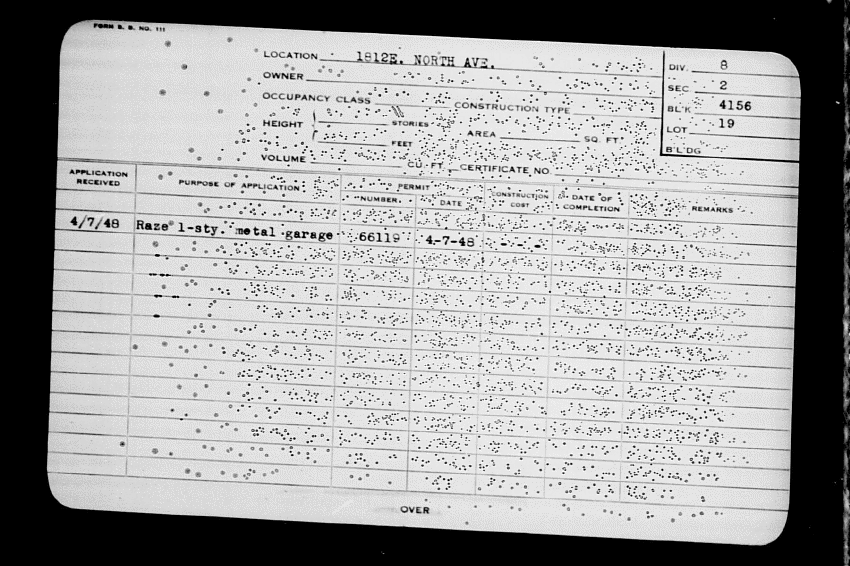 FORM B. B. NO. 111
LOCATION 1812E. NORTH AVE.
DIV. 8
OWNER
SEC 2
OCCUPANCY CLASS CONSTRUCTION TYPE
BL'K 4156
HEIGHT STORIES
FEET
AREA SQ. FT.
LOT 19
B'L'DG
VOLUME CU. FT. CERTIFICATE NO.
APPLICATION RECEIVED
PURPOSE OF APPLICATION
PERMIT
NUMBER. DATE
CONSTRUCTION COST
DATE OF COMPLETION
REMARKS
4/7/48 Raze 1-sty. metal garage 66119 4-7-48 - - -
OVER